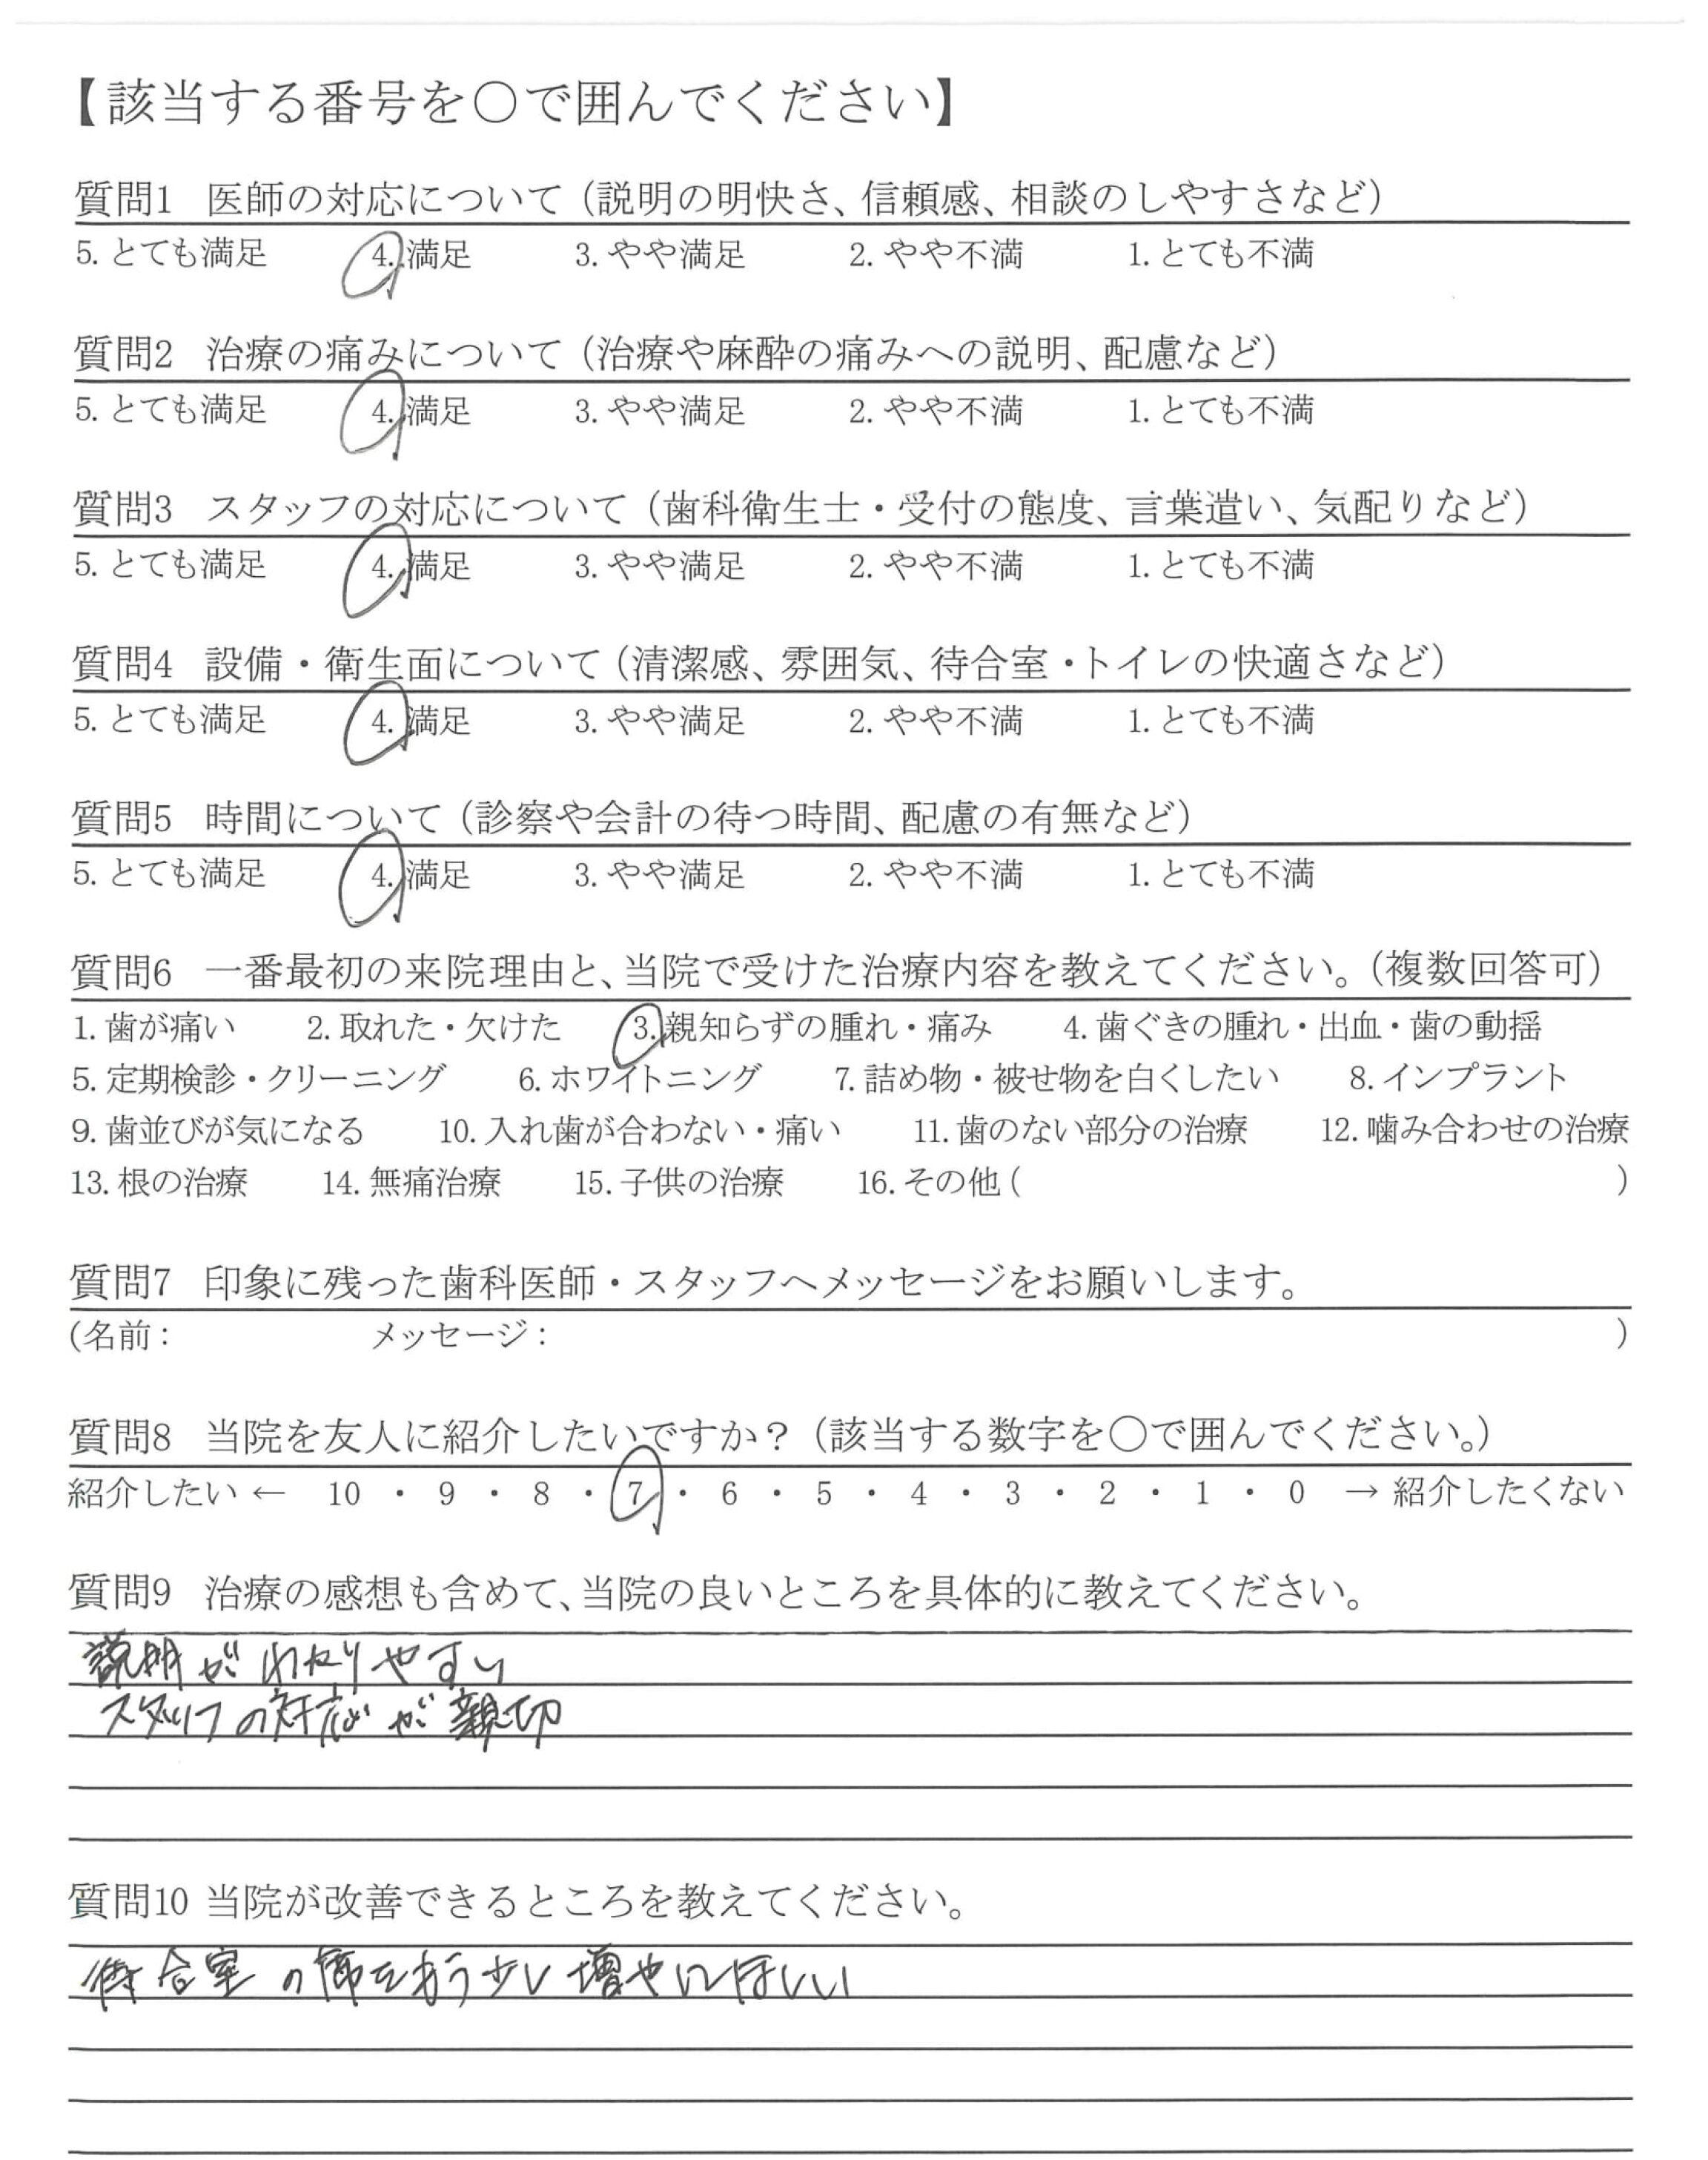 【該当する番号を○で囲んでください】
質問1 医師の対応について（説明の明快さ、信頼感、相談のしやすさなど）
5. とても満足 4. 満足 3. やや満足 2. やや不満 1. とても不満
質問2 治療の痛みについて（治療や麻酔の痛みへの説明、配慮など）
5. とても満足 4. 満足 3. やや満足 2. やや不満 1. とても不満
質問3 スタッフの対応について（歯科衛生士・受付の態度、言葉遣い、気配りなど）
5. とても満足 4. 満足 3. やや満足 2. やや不満 1. とても不満
質問4 設備・衛生面について（清潔感、雰囲気、待合室・トイレの快適さなど）
5. とても満足 4. 満足 3. やや満足 2. やや不満 1. とても不満
質問5 時間について（診察や会計の待つ時間、配慮の有無など）
5. とても満足 4. 満足 3. やや満足 2. やや不満 1. とても不満
質問6 一番最初の来院理由と、当院で受けた治療内容を教えてください。（複数回答可）
1. 歯が痛い 2. 取れた・欠けた 3. 親知らずの腫れ・痛み 4. 歯ぐきの腫れ・出血・歯の動揺
5. 定期検診・クリーニング 6. ホワイトニング 7. 詰め物・被せ物を白くしたい 8. インプラント
9. 歯並びが気になる 10. 入れ歯が合わない・痛い 11. 歯のない部分の治療 12. 噛み合わせの治療
13. 根の治療 14. 無痛治療 15. 子供の治療 16. その他 ( )
質問7 印象に残った歯科医師・スタッフへメッセージをお願いします。
(名前： メッセージ： )
質問8 当院を友人に紹介したいですか？（該当する数字を○で囲んでください。）
紹介したい ← 10 ・ 9 ・ 8 ・ 7 ・ 6 ・ 5 ・ 4 ・ 3 ・ 2 ・ 1 ・ 0 → 紹介したくない
質問9 治療の感想も含めて、当院の良いところを具体的に教えてください。
説明がわかりやすい
スタッフの対応が親切
質問10 当院が改善できるところを教えてください。
待合室の席をもう少し増やしてほしい